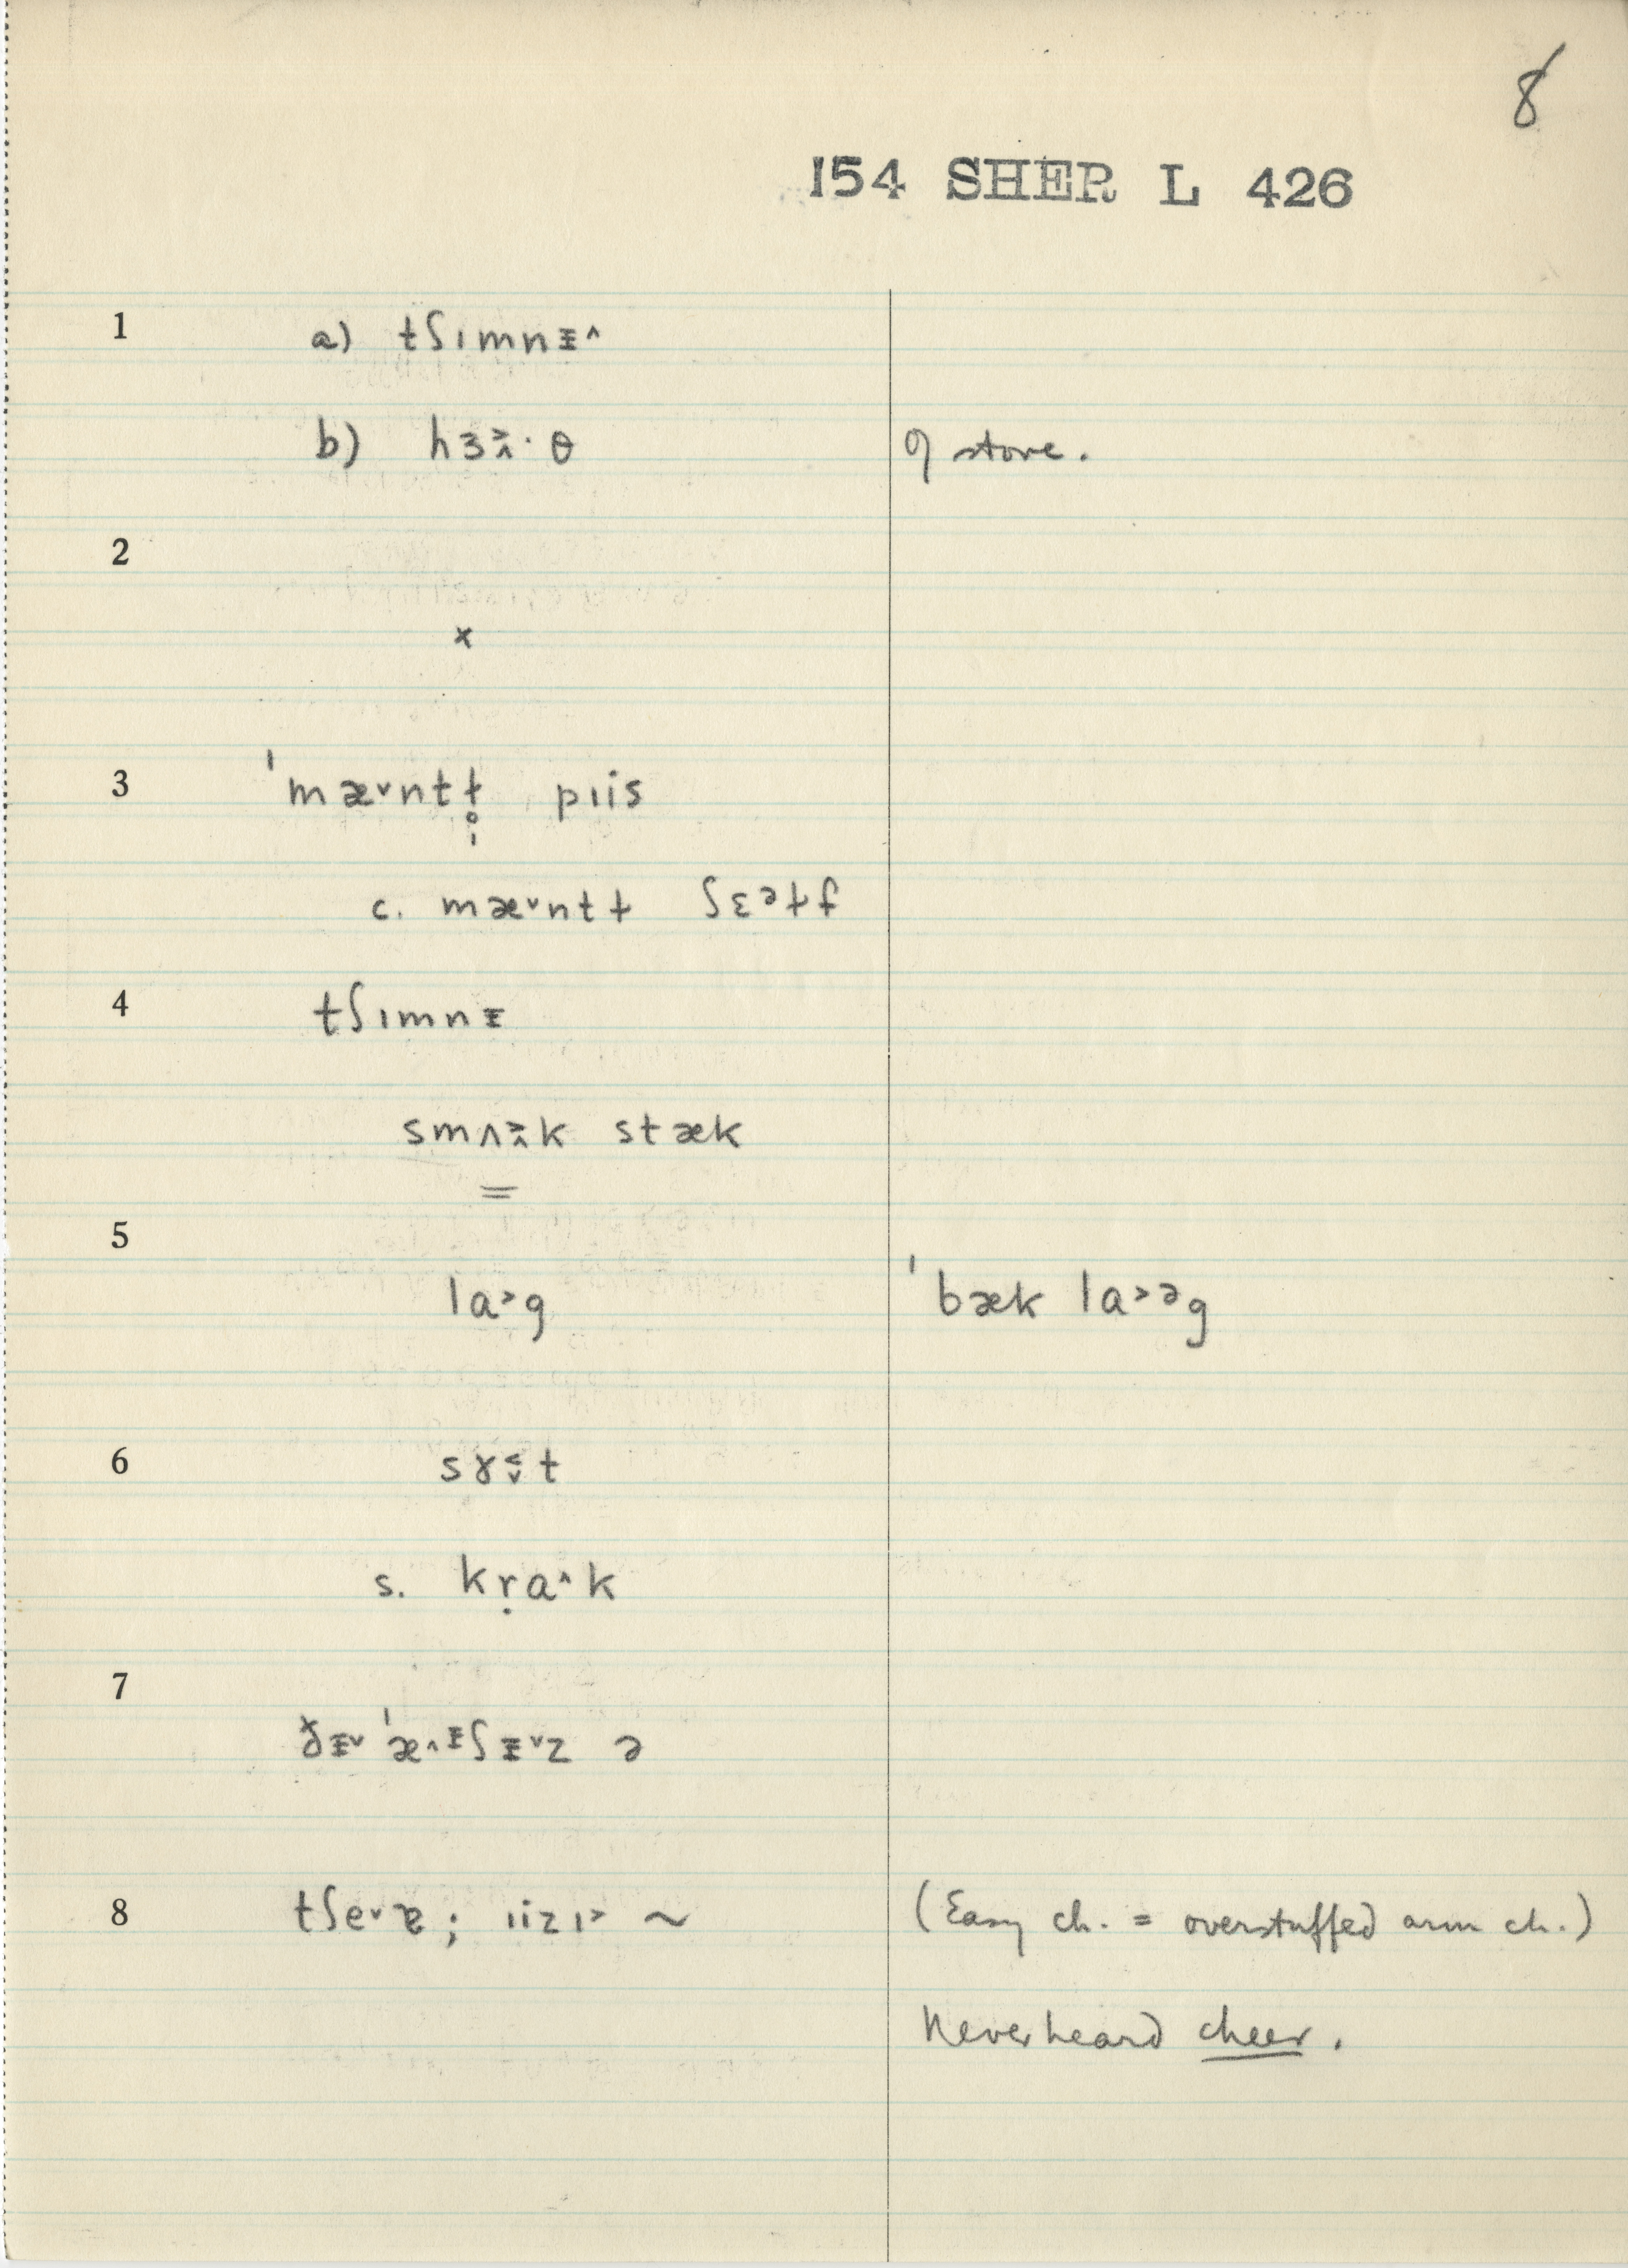 8
154 SHER L 426
1 a) tʃɪmnᵻ˄
b) hɜ˃˄·θ of stove.
2
x
3 ˈmæ˅ntɫ̥̩ pɪis
c. mæ˅ntɫ ʃɛᵊɫf
4 tʃɪmnᵻ
smʌ˃˄k stæk
=
5
lɑ˃g ˈbæk lɑ˃ᵊg
6 sɤ˂˅t
s. kṛɑ˄k
7
ðᵻ˅ ˈæ˄ᵻʃᵻ˅z ə
8 tʃe˅ɐ; ɪizɪ˃ ~ (Easy ch. = overstuffed arm ch.)
Never heard cheer.